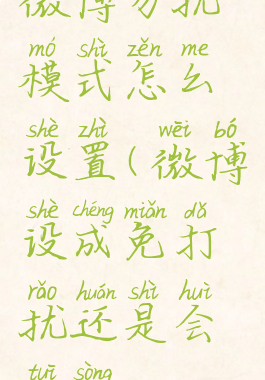 微博勿扰
mó shì zěn me
模式怎么
shè zhì wēi bó
设置(微博
shè chéng miǎn dǎ
设成免打
rǎo huán shì huì
扰还是会
tuī sòng